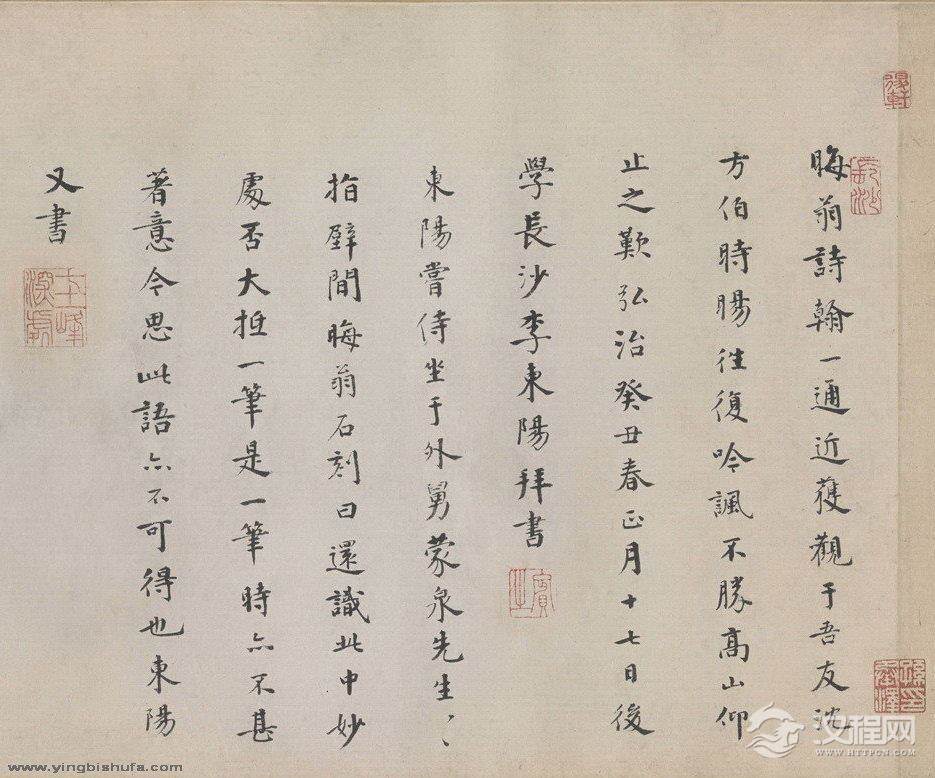 晦翁詩翰一通近獲觀于吾友沈
方伯時暘往復吟諷不勝高山仰
止之歎弘治癸丑春正月十七日後
學長沙李東陽拜書
東陽嘗侍坐于外舅蒙泉先生、、
指壁間晦翁石刻曰還識此中妙
處否大抵一筆是一筆時亦不甚
著意今思此語亦不可得也東陽
又書
長沙
賓之
汉程网
WWW.HTTPCN.COM
www.yingbishufa.com